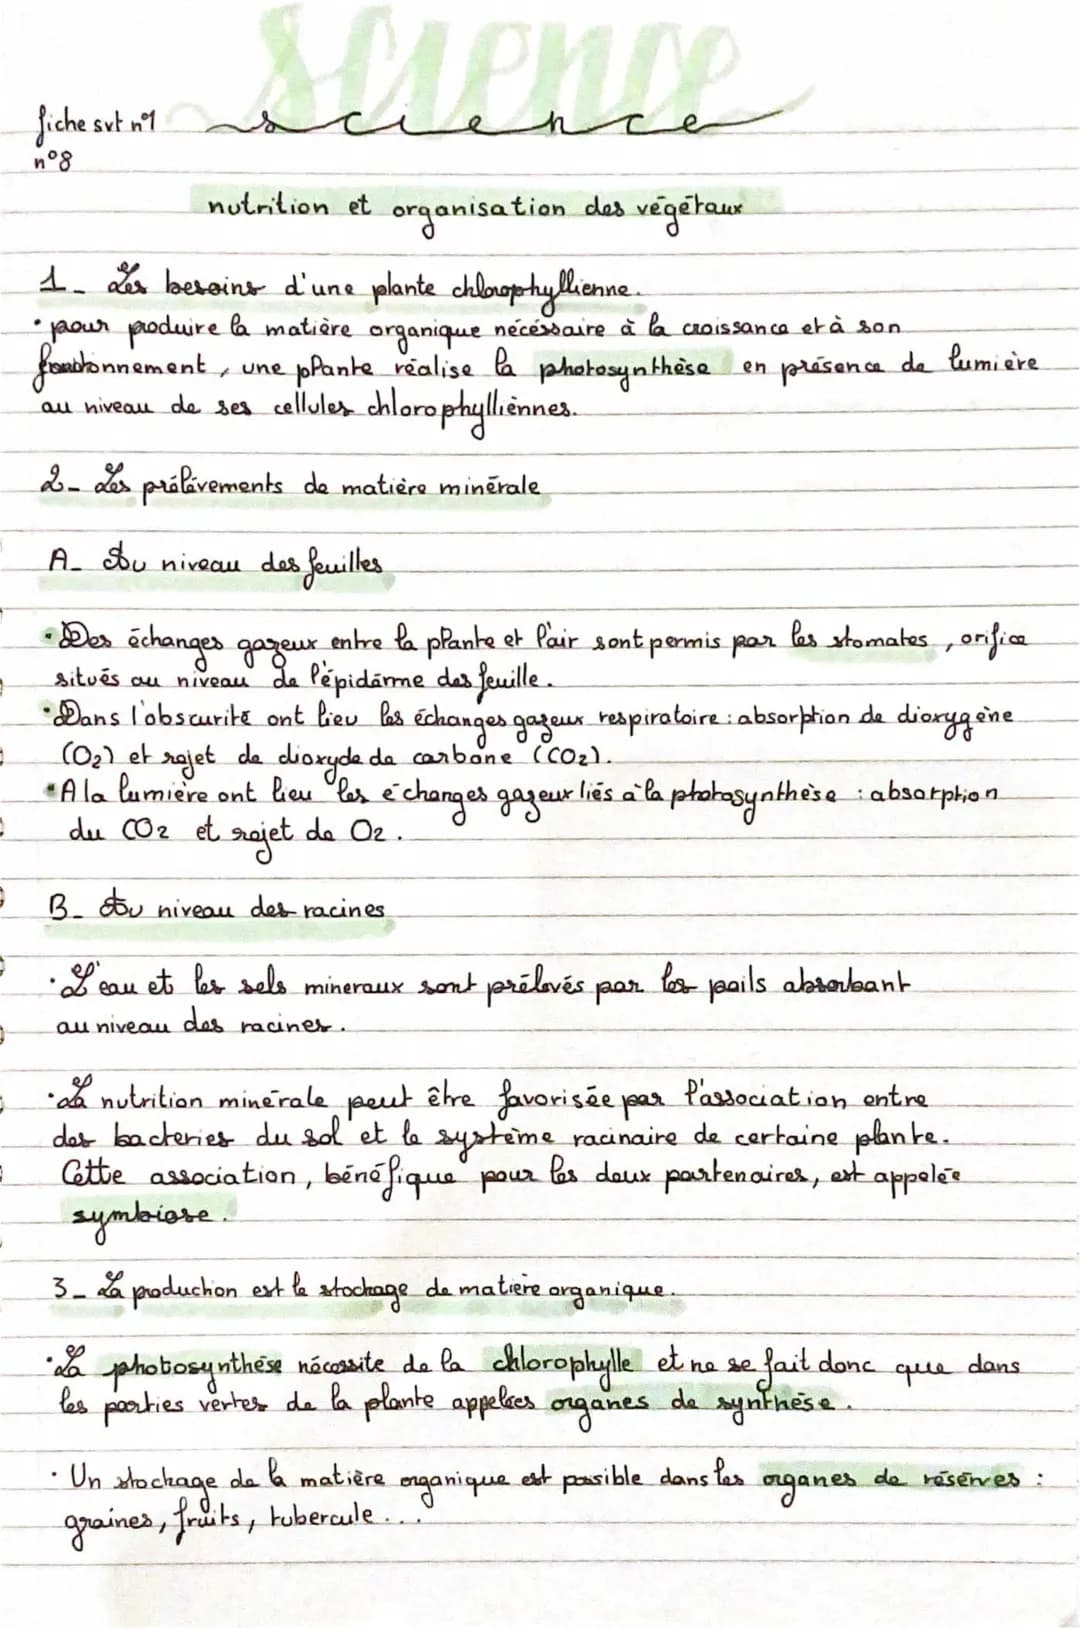 science
fiche svt n°1
science
n°8
nutrition et organisation des végétaux
1_ Les besoins d'une plante chlorophyllienne.
• pour produire la matière organique nécéssaire à la croissance et à son
fonctionnement, une plante réalise la photosynthèse en présence de lumière
au niveau de ses cellules chlorophylliènnes.
2_ Les prélèvements de matière minérale
A_ Au niveau des feuilles
• Des échanges gazeux entre la plante et l'air sont permis par les stomates, orifice
situés au niveau de l'épidèrme des feuille.
• Dans l'obscurité ont lieu les échanges gazeux respiratoire : absorption de dioxygène
(O2) et rejet de dioxyde de carbone (CO2).
• A la lumière ont lieu les échanges gazeux liés à la photosynthèse : absorption
du CO2 et rejet de O2.
B_ Au niveau des racines
• L'eau et les sels mineraux sont prélevés par les poils absorbant
au niveau des racines.
• La nutrition minérale peut être favorisée par l'association entre
des bacteries du sol et le système racinaire de certaine plante.
Cette association, bénéfique pour les deux partenaires, est appelée
symbiose.
3_ La production est le stochage de matière organique.
• La photosynthèse nécessite de la chlorophylle et ne se fait donc que dans
les parties vertes de la plante appelées organes de synthèse.
• Un stochage de la matière organique est possible dans les organes de résérves :
graines, fruits, tubercule ...